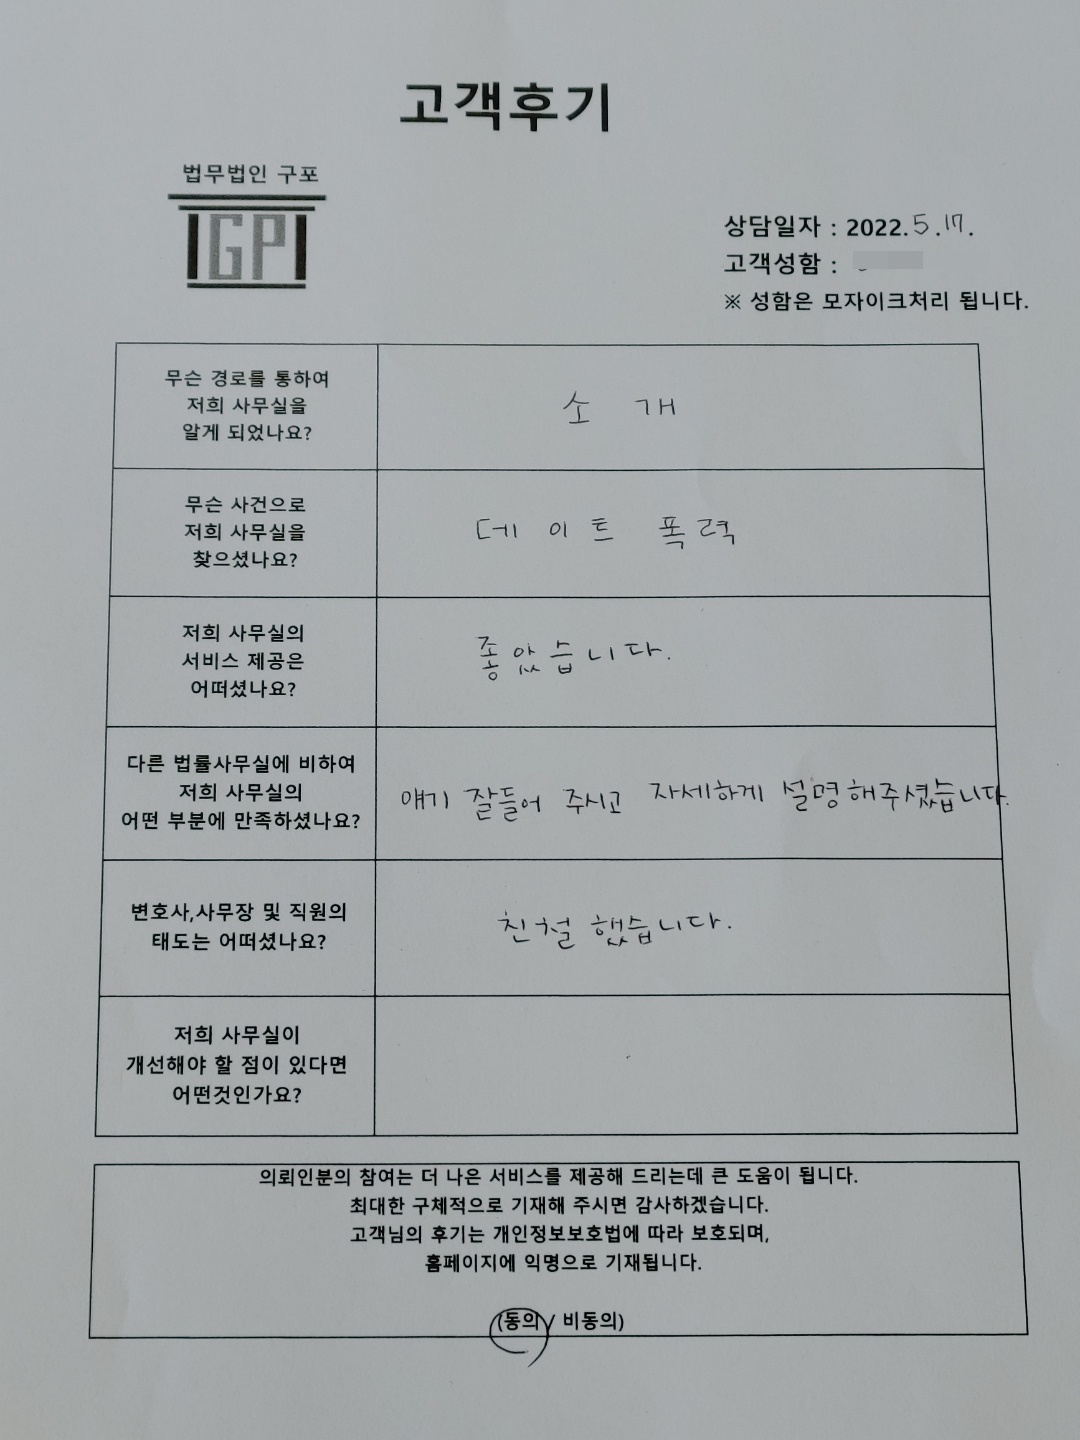 고객후기
법무법인 구포
IGPI
상담일자 : 2022.5.17.
고객성함 :
※ 성함은 모자이크처리 됩니다.
무슨 경로를 통하여
저희 사무실을
알게 되었나요?
소개
무슨 사건으로
저희 사무실을
찾으셨나요?
데이트 폭력
저희 사무실의
서비스 제공은
어떠셨나요?
좋았습니다.
다른 법률사무실에 비하여
저희 사무실의
어떤 부분에 만족하셨나요?
얘기 잘들어 주시고 자세하게 설명해주셨습니다.
변호사,사무장 및 직원의
태도는 어떠셨나요?
친절했습니다.
저희 사무실이
개선해야 할 점이 있다면
어떤것인가요?
의뢰인분의 참여는 더 나은 서비스를 제공해 드리는데 큰 도움이 됩니다.
최대한 구체적으로 기재해 주시면 감사하겠습니다.
고객님의 후기는 개인정보보호법에 따라 보호되며,
홈페이지에 익명으로 기재됩니다.
(동의 / 비동의)